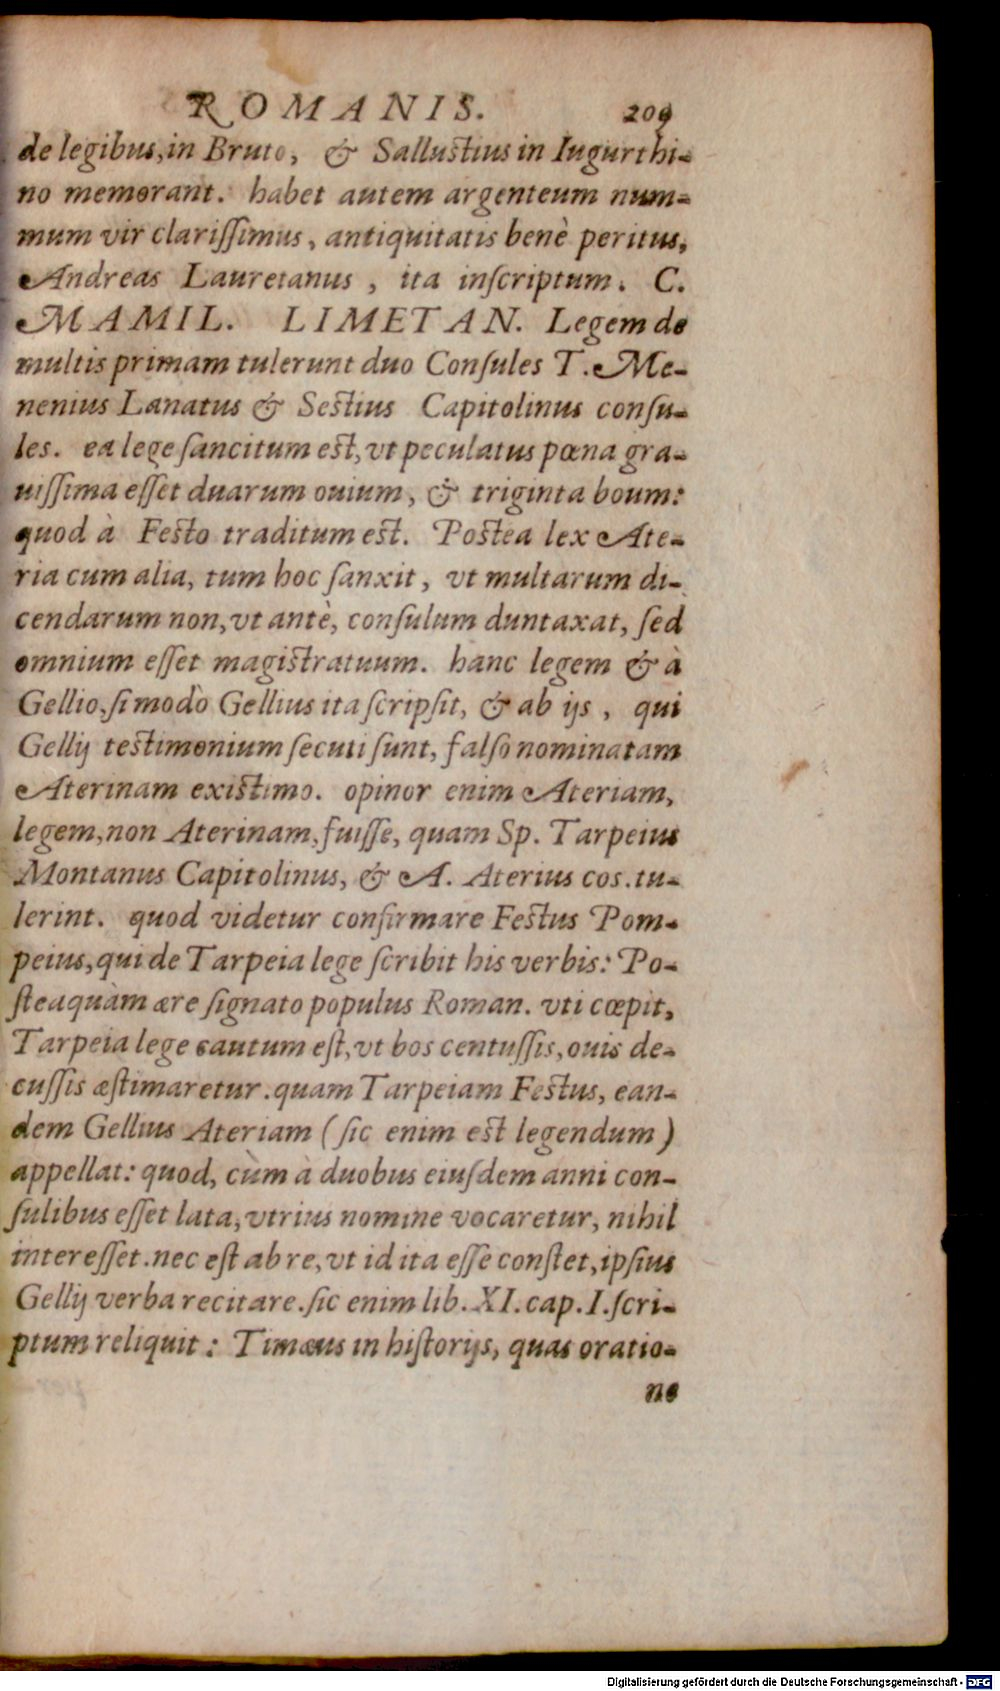 ROMANIS. 209
de legibus, in Bruto, & Sallustius in Iugurthi-
no memorant. habet autem argenteum num-
mum vir clarißimus, antiquitatis benè peritus,
Andreas Lauretanus, ita inſcriptum. C.
MAMIL. LIMETAN. Legem de
multis primam tulerunt duo Conſules T. Me-
nenius Lanatus & Sestius Capitolinus conſu-
les. ea lege ſancitum est, vt peculatus pœna gra-
uiſſima eſſet duarum ouium, & triginta boum:
quod à Festo traditum est. Postea lex Ate-
ria cum alia, tum hoc ſanxit, vt multarum di-
cendarum non, vt antè, conſulum duntaxat, ſed
omnium eſſet magistratuum. hanc legem & à
Gellio, ſi modò Gellius ita ſcripſit, & ab ijs, qui
Gellij testimonium ſecuti ſunt, falſo nominatam
Aterinam existimo. opinor enim Ateriam,
legem, non Aterinam, fuiſſe, quam Sp. Tarpeius
Montanus Capitolinus, & A. Aterius cos. tu-
lerint. quod videtur confirmare Festus Pom-
peius, qui de Tarpeia lege ſcribit his verbis: Po-
ſteaquàm ære ſignato populus Roman. vti cœpit,
Tarpeia lege cautum eſt, vt bos centuſſis, ouis de-
cuſſis æſtimaretur. quam Tarpeiam Festus, ean-
dem Gellius Ateriam (ſic enim est legendum)
appellat: quod, cùm à duobus eiuſdem anni con-
ſulibus eſſet lata, vtrius nomine vocaretur, nihil
intereſſet. nec eſt ab re, vt id ita eſſe conſtet, ipſius
Gellij verba recitare. ſic enim lib. XI. cap. I. ſcri-
ptum reliquit: Timæus in hiſtorijs, quas oratio-
ne
Digitalisierung gefördert durch die Deutsche Forschungsgemeinschaft - DFG